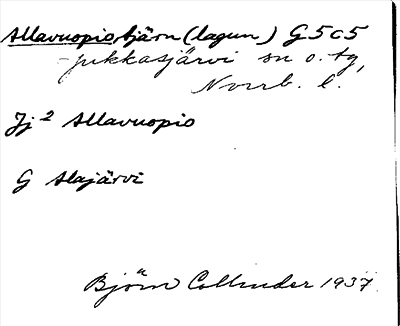 Allavuopiotjärn (lagun) G5c5
Jukkasjärvi sn o. tg,
Norrb. l.
Jj² Allavuopio
G Alajärvi
Björn Collinder 1937